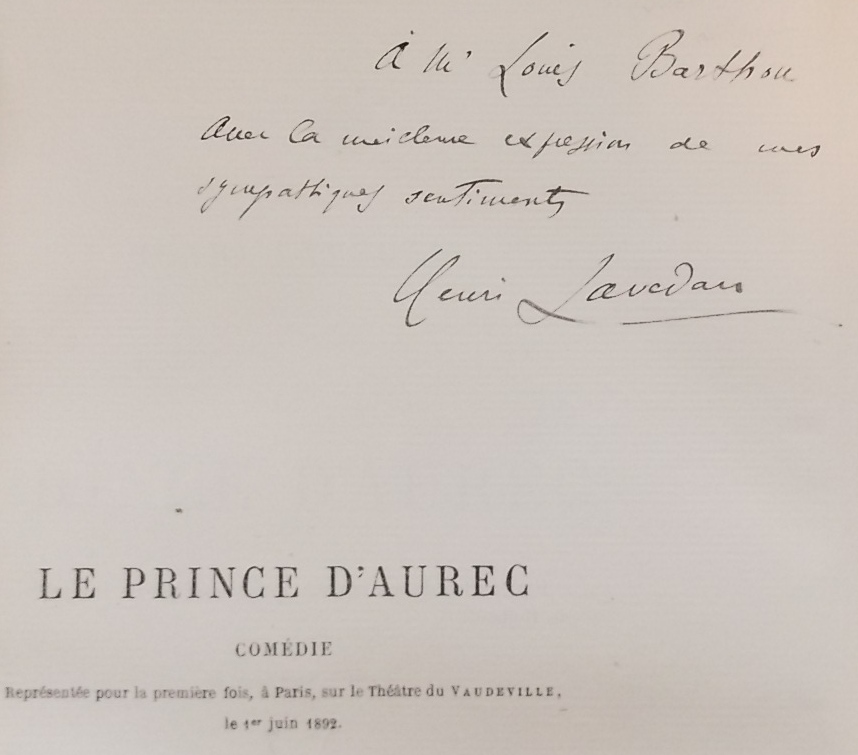 À Mr Louis Barthou
avec la meilleure expression de mes
sympathiques sentiments
Henri Lavedan
LE PRINCE D'AUREC
COMÉDIE
Représentée pour la première fois, à Paris, sur le Théâtre du VAUDEVILLE,
le 1er juin 1892.